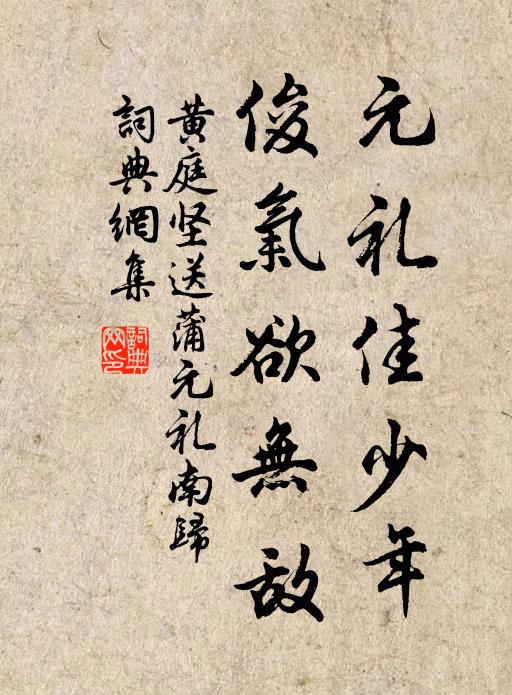 元礼佳少年
俊氣欲無敵
黄庭坚送蒲元礼南歸
詞典網集
詞典網印